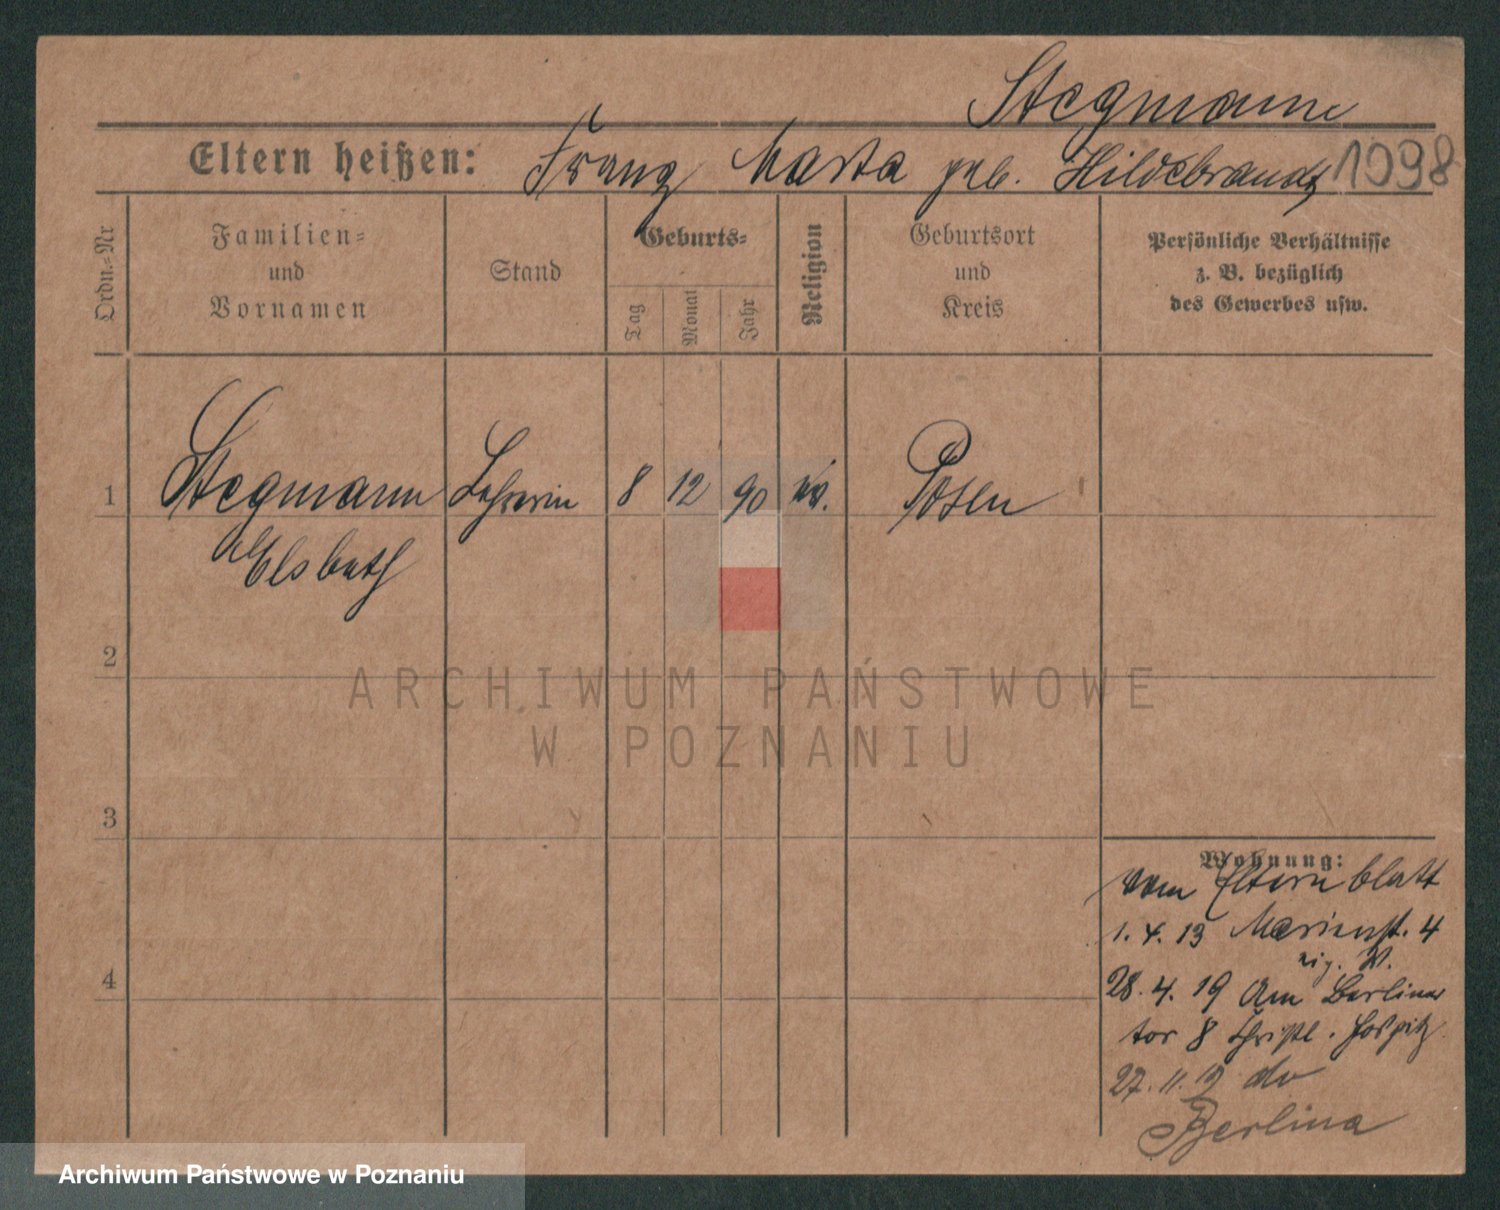 Stegmann
Eltern heißen: Franz Marta geb. Hildebrandt 1098
Ordn.-Nr
Familien-
und
Vornamen
Stand
Geburts-
Tag
Monat
Jahr
Religion
Geburtsort
und
Kreis
Persönliche Verhältnisse
z. B. bezüglich
des Gewerbes usw.
1 Stegmann Lehrerin 8 12 90 ev. Posen
Elsbeth
2
ARCHIWUM PAŃSTWOWE
W POZNANIU
3
Wohnung:
vom Elternblatt
1. 4. 13 Marienst. 4
eig. W.
28. 4. 19 Am Berliner
tor 8 Christl. Hospitz
27. 11. 19
Berlina
4
Archiwum Państwowe w Poznaniu